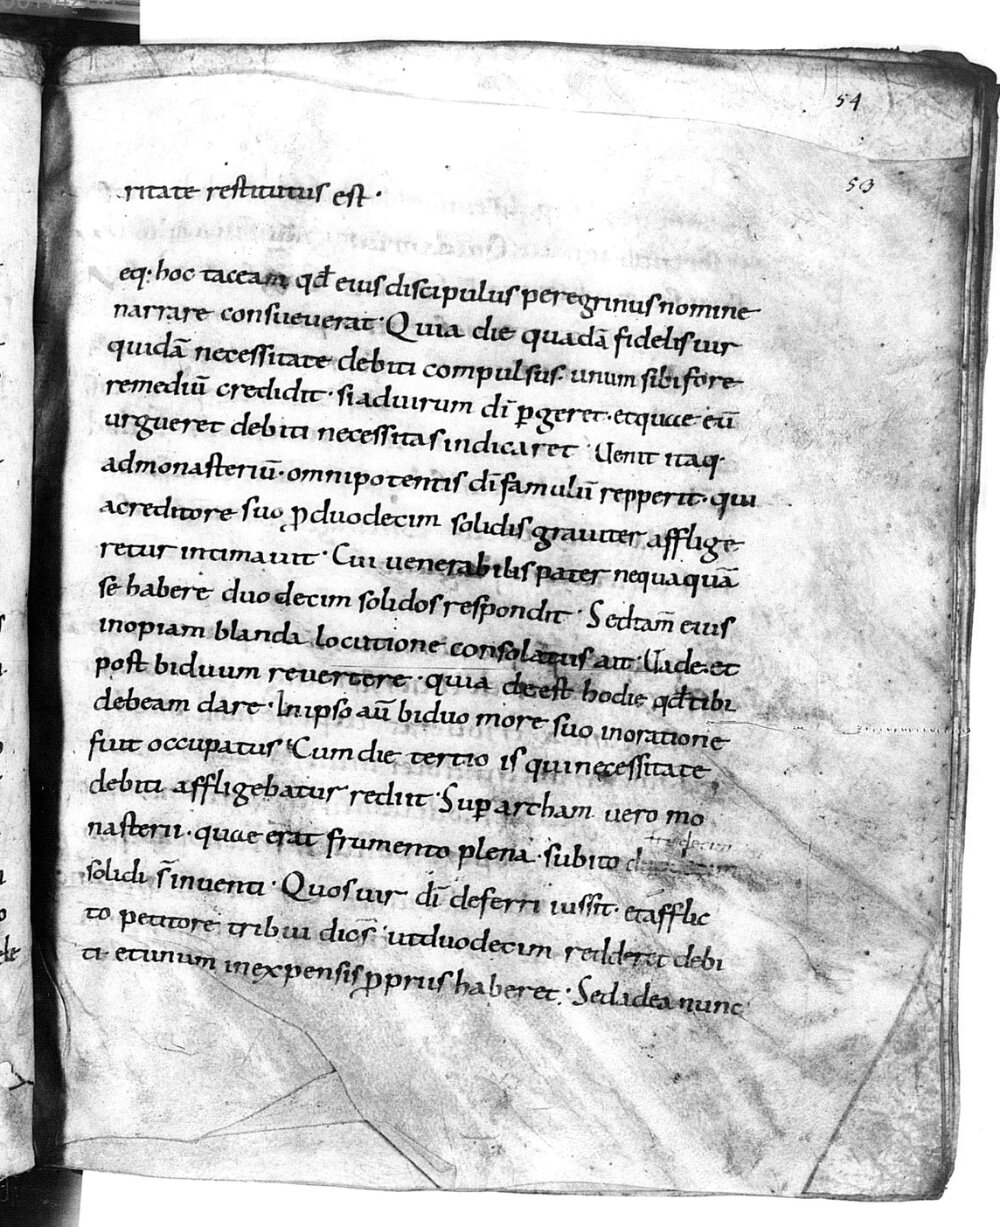 54
53
ritate restitutus est·
eq·hoc taceam qđ eius discipulus peregrinus nomine
narrare consueuerat· Quia die quadā fidelis uir
quidā necessitate debiti compulsus· unum sibi fore
remediū credidit· si ad uirum dī ꝑgeret· et quae eū
urgueret debiti necessitas indicaret· Uenit itaq·
ad monasteriū· omnipotentis dī famulū repperit· qui
a creditore suo ꝓ duodecim solidis grauiter afflige
retur intimauit· Cui uenerabilis pater nequaquā
se habere duodecim solidos respondit· Sed tam̄ eius
inopiam blanda locutione consolatus ait· Uade· et
post biduum reuertere· quia deest hodie qđ tibi
debeam dare· In ipso aū biduo more suo in oratione
fuit occupatus· Cum die tertio is qui necessitate
debiti affligebatur rediit· Suꝑ archam uero mo
nasterii· quae erat frumento plena· subito
tredecim
solidi s̄ inuenti· Quos uir dī deferri iussit· et afflic
to petitore tribui dicēs· ut duodecim redderet debi
ti et unum in expensis ꝓpriis haberet· Sed ad ea nunc